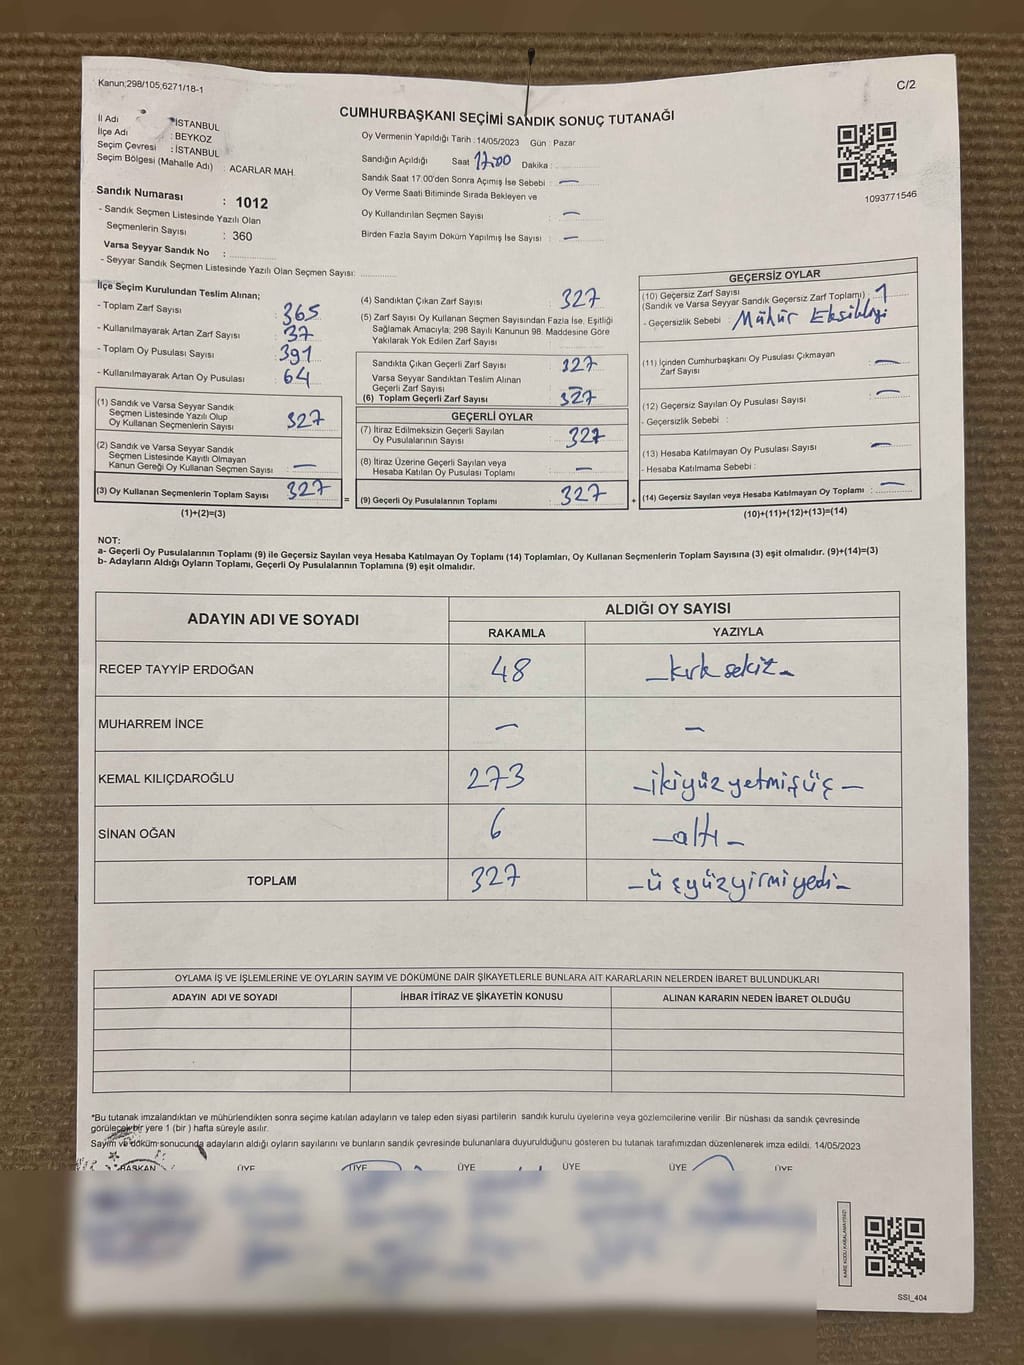 Kanun;298/105;6271/18-1
C/2
CUMHURBAŞKANI SEÇİMİ SANDIK SONUÇ TUTANAĞI
İl Adı : İSTANBUL
İlçe Adı : BEYKOZ
Seçim Çevresi : İSTANBUL
Seçim Bölgesi (Mahalle Adı) : ACARLAR MAH.
Oy Vermenin Yapıldığı Tarih : 14/05/2023 Gün : Pazar
Sandığın Açıldığı Saat 17:00 Dakika :
Sandık Saat 17.00'den Sonra Açımış İse Sebebi : —
Oy Verme Saati Bitiminde Sırada Bekleyen ve
Oy Kullandırılan Seçmen Sayısı : —
Birden Fazla Sayım Döküm Yapılmış İse Sayısı : —
1093771546
Sandık Numarası : 1012
- Sandık Seçmen Listesinde Yazılı Olan
Seçmenlerin Sayısı : 360
Varsa Seyyar Sandık No :
- Seyyar Sandık Seçmen Listesinde Yazılı Olan Seçmen Sayısı:
İlçe Seçim Kurulundan Teslim Alınan;
- Toplam Zarf Sayısı 365
- Kullanılmayarak Artan Zarf Sayısı 37
- Toplam Oy Pusulası Sayısı 391
- Kullanılmayarak Artan Oy Pusulası 64
(1) Sandık ve Varsa Seyyar Sandık
Seçmen Listesinde Yazılı Olup
Oy Kullanan Seçmenlerin Sayısı 327
(2) Sandık ve Varsa Seyyar Sandık
Seçmen Listesinde Kayıtlı Olmayan
Kanun Gereği Oy Kullanan Seçmen Sayısı —
(3) Oy Kullanan Seçmenlerin Toplam Sayısı 327
(1)+(2)=(3)
=
(4) Sandıktan Çıkan Zarf Sayısı 327
(5) Zarf Sayısı Oy Kullanan Seçmen Sayısından Fazla İse, Eşitliği
Sağlamak Amacıyla; 298 Sayılı Kanunun 98. Maddesine Göre
Yakılarak Yok Edilen Zarf Sayısı
Sandıkta Çıkan Geçerli Zarf Sayısı 327
Varsa Seyyar Sandıktan Teslim Alınan
Geçerli Zarf Sayısı —
(6) Toplam Geçerli Zarf Sayısı 327
GEÇERLİ OYLAR
(7) İtiraz Edilmeksizin Geçerli Sayılan
Oy Pusulalarının Sayısı 327
(8) İtiraz Üzerine Geçerli Sayılan veya
Hesaba Katılan Oy Pusulası Toplamı —
(9) Geçerli Oy Pusulalarının Toplamı 327
+
GEÇERSİZ OYLAR
(10) Geçersiz Zarf Sayısı
(Sandık ve Varsa Seyyar Sandık Geçersiz Zarf Toplamı) 1
- Geçersizlik Sebebi : Mühür Eksikliği
(11) İçinden Cumhurbaşkanı Oy Pusulası Çıkmayan
Zarf Sayısı —
(12) Geçersiz Sayılan Oy Pusulası Sayısı —
- Geçersizlik Sebebi :
(13) Hesaba Katılmayan Oy Pusulası Sayısı —
- Hesaba Katılmama Sebebi :
(14) Geçersiz Sayılan veya Hesaba Katılmayan Oy Toplamı : —
(10)+(11)+(12)+(13)=(14)
NOT:
a- Geçerli Oy Pusulalarının Toplamı (9) ile Geçersiz Sayılan veya Hesaba Katılmayan Oy Toplamı (14) Toplamları, Oy Kullanan Seçmenlerin Toplam Sayısına (3) eşit olmalıdır. (9)+(14)=(3)
b- Adayların Aldığı Oyların Toplamı, Geçerli Oy Pusulalarının Toplamına (9) eşit olmalıdır.
ADAYIN ADI VE SOYADI
ALDIĞI OY SAYISI
RAKAMLA YAZIYLA
RECEP TAYYİP ERDOĞAN 48 —kırksekiz—
MUHARREM İNCE — —
KEMAL KILIÇDAROĞLU 273 —ikiyüzyetmişüç—
SİNAN OĞAN 6 —altı—
TOPLAM 327 —üçyüzyirmiyedi—
OYLAMA İŞ VE İŞLEMLERİNE VE OYLARIN SAYIM VE DÖKÜMÜNE DAİR ŞİKAYETLERLE BUNLARA AİT KARARLARIN NELERDEN İBARET BULUNDUKLARI
ADAYIN ADI VE SOYADI İHBAR İTİRAZ VE ŞİKAYETİN KONUSU ALINAN KARARIN NEDEN İBARET OLDUĞU
*Bu tutanak imzalandıktan ve mühürlendikten sonra seçime katılan adayların ve talep eden siyasi partilerin sandık kurulu üyelerine veya gözlemcilerine verilir. Bir nüshası da sandık çevresinde
görülecek bir yere 1 (bir ) hafta süreyle asılır.
Sayım ve döküm sonucunda adayların aldığı oyların sayılarını ve bunların sandık çevresinde bulunanlara duyurulduğunu gösteren bu tutanak tarafımızdan düzenlenerek imza edildi. 14/05/2023
BAŞKAN ÜYE ÜYE ÜYE ÜYE ÜYE ÜYE
KARE KODU KARALAMAYINIZ!
SSI_404